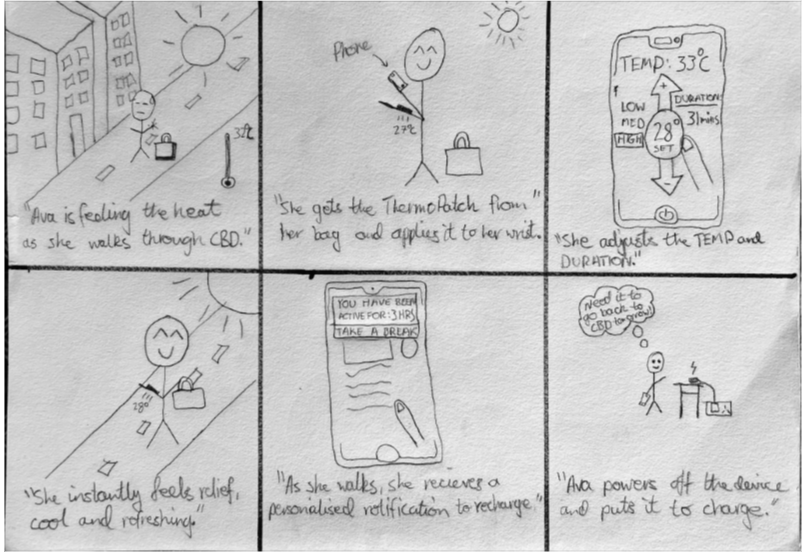 32°C
"Ava is feeling the heat
as she walks through CBD."
Phone
27°C
"She gets the ThermoPatch from"
her bag and applies it to her wrist.
TEMP: 33°C
+
DURATION
LOW
MED
HIGH
31mins
28°
SET
-
"She adjusts the TEMP and
DURATION."
28°
"She instantly feels relief,
cool and refreshing."
YOU HAVE BEEN
ACTIVE FOR: 3HRS
TAKE A BREAK
"As she walks, she recieves a
personalised notification to recharge"
Need it to
go back to
CBD tomorrow!
"Ava powers off the device
and puts it to charge."